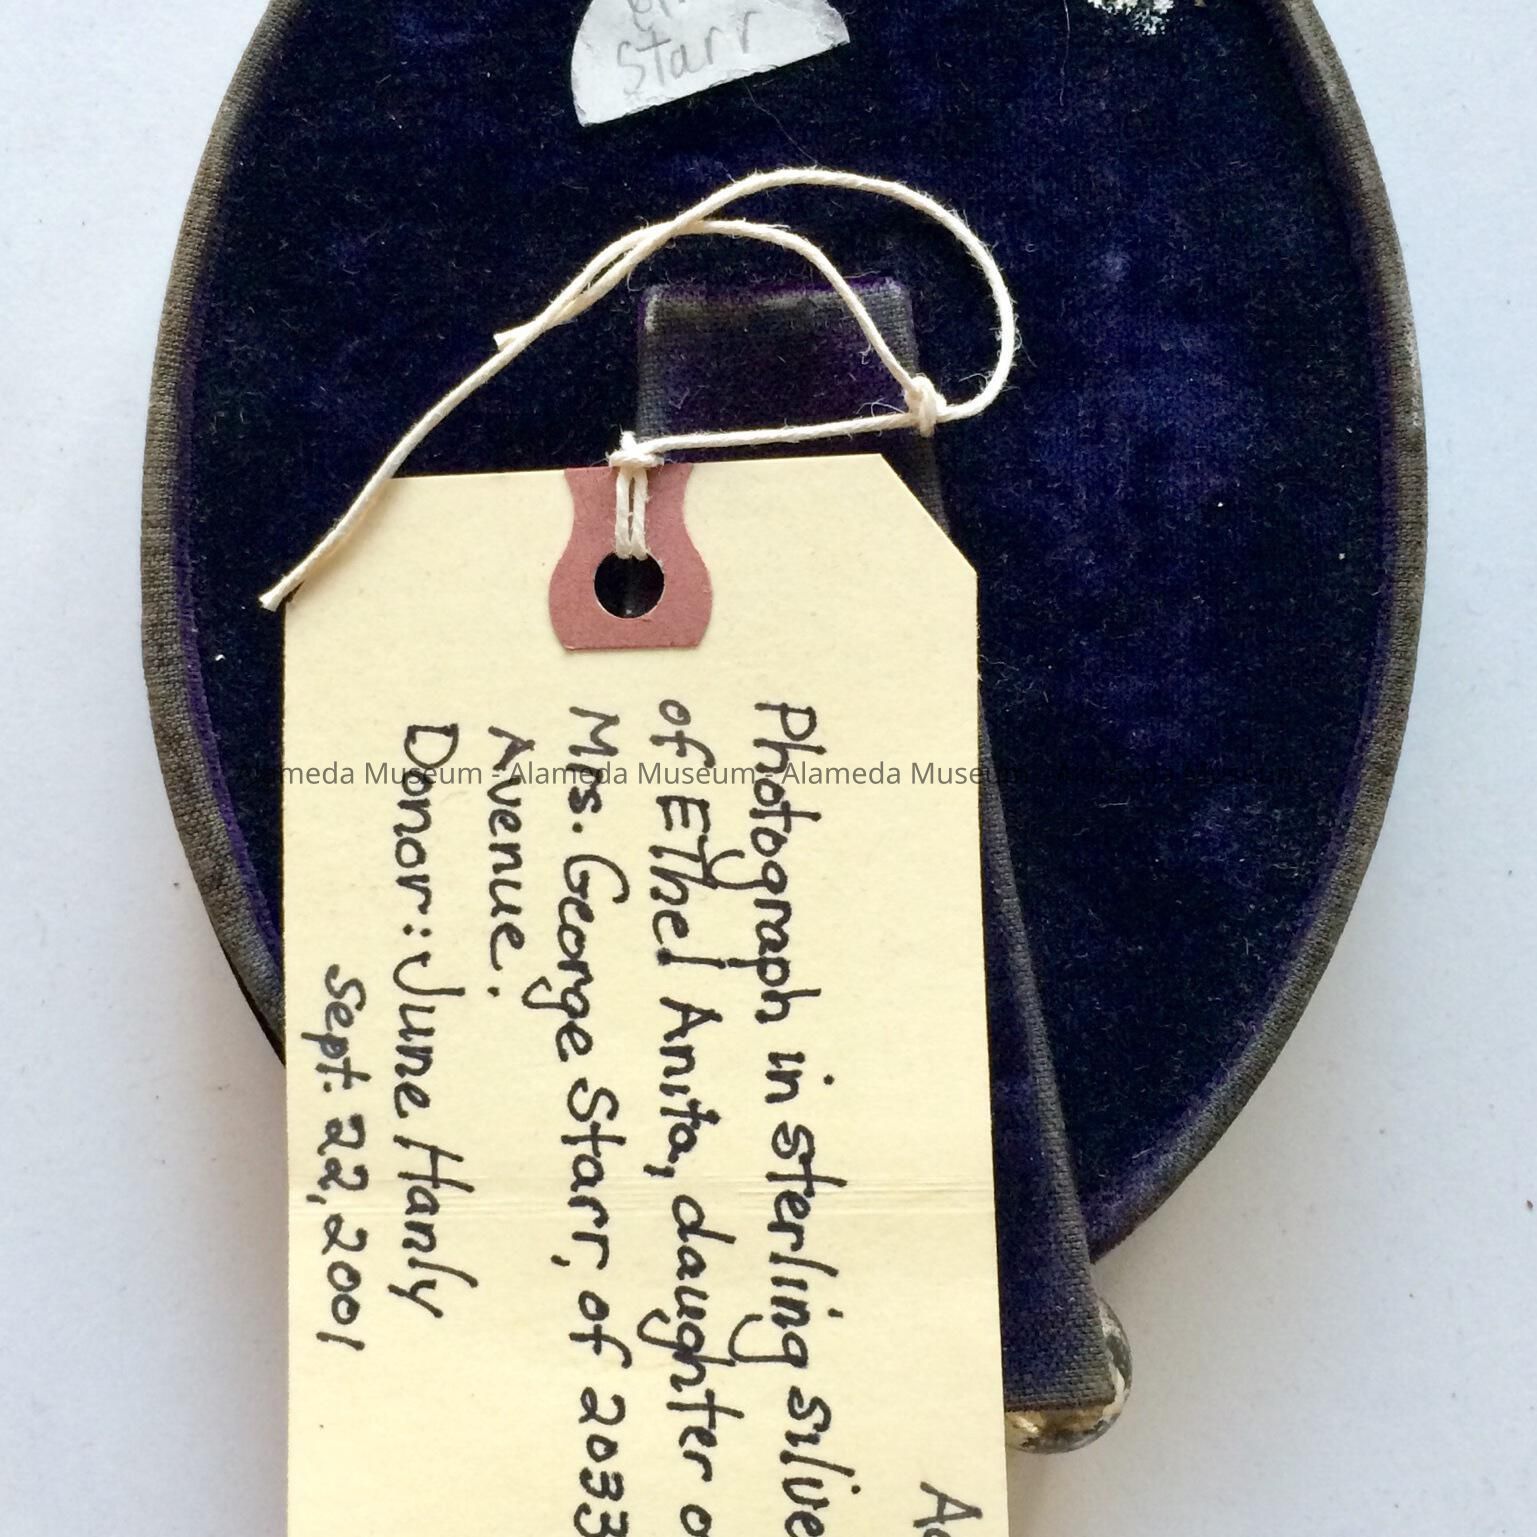 Starr
Photograph in sterling silve
of Ethel Anita, daughter o
Mrs. George Starr, of 2033
Avenue.
Donor: June Hanly
Sept. 22, 2001
Alameda Museum - Alameda Museum - Alameda Museum - Alameda Museum